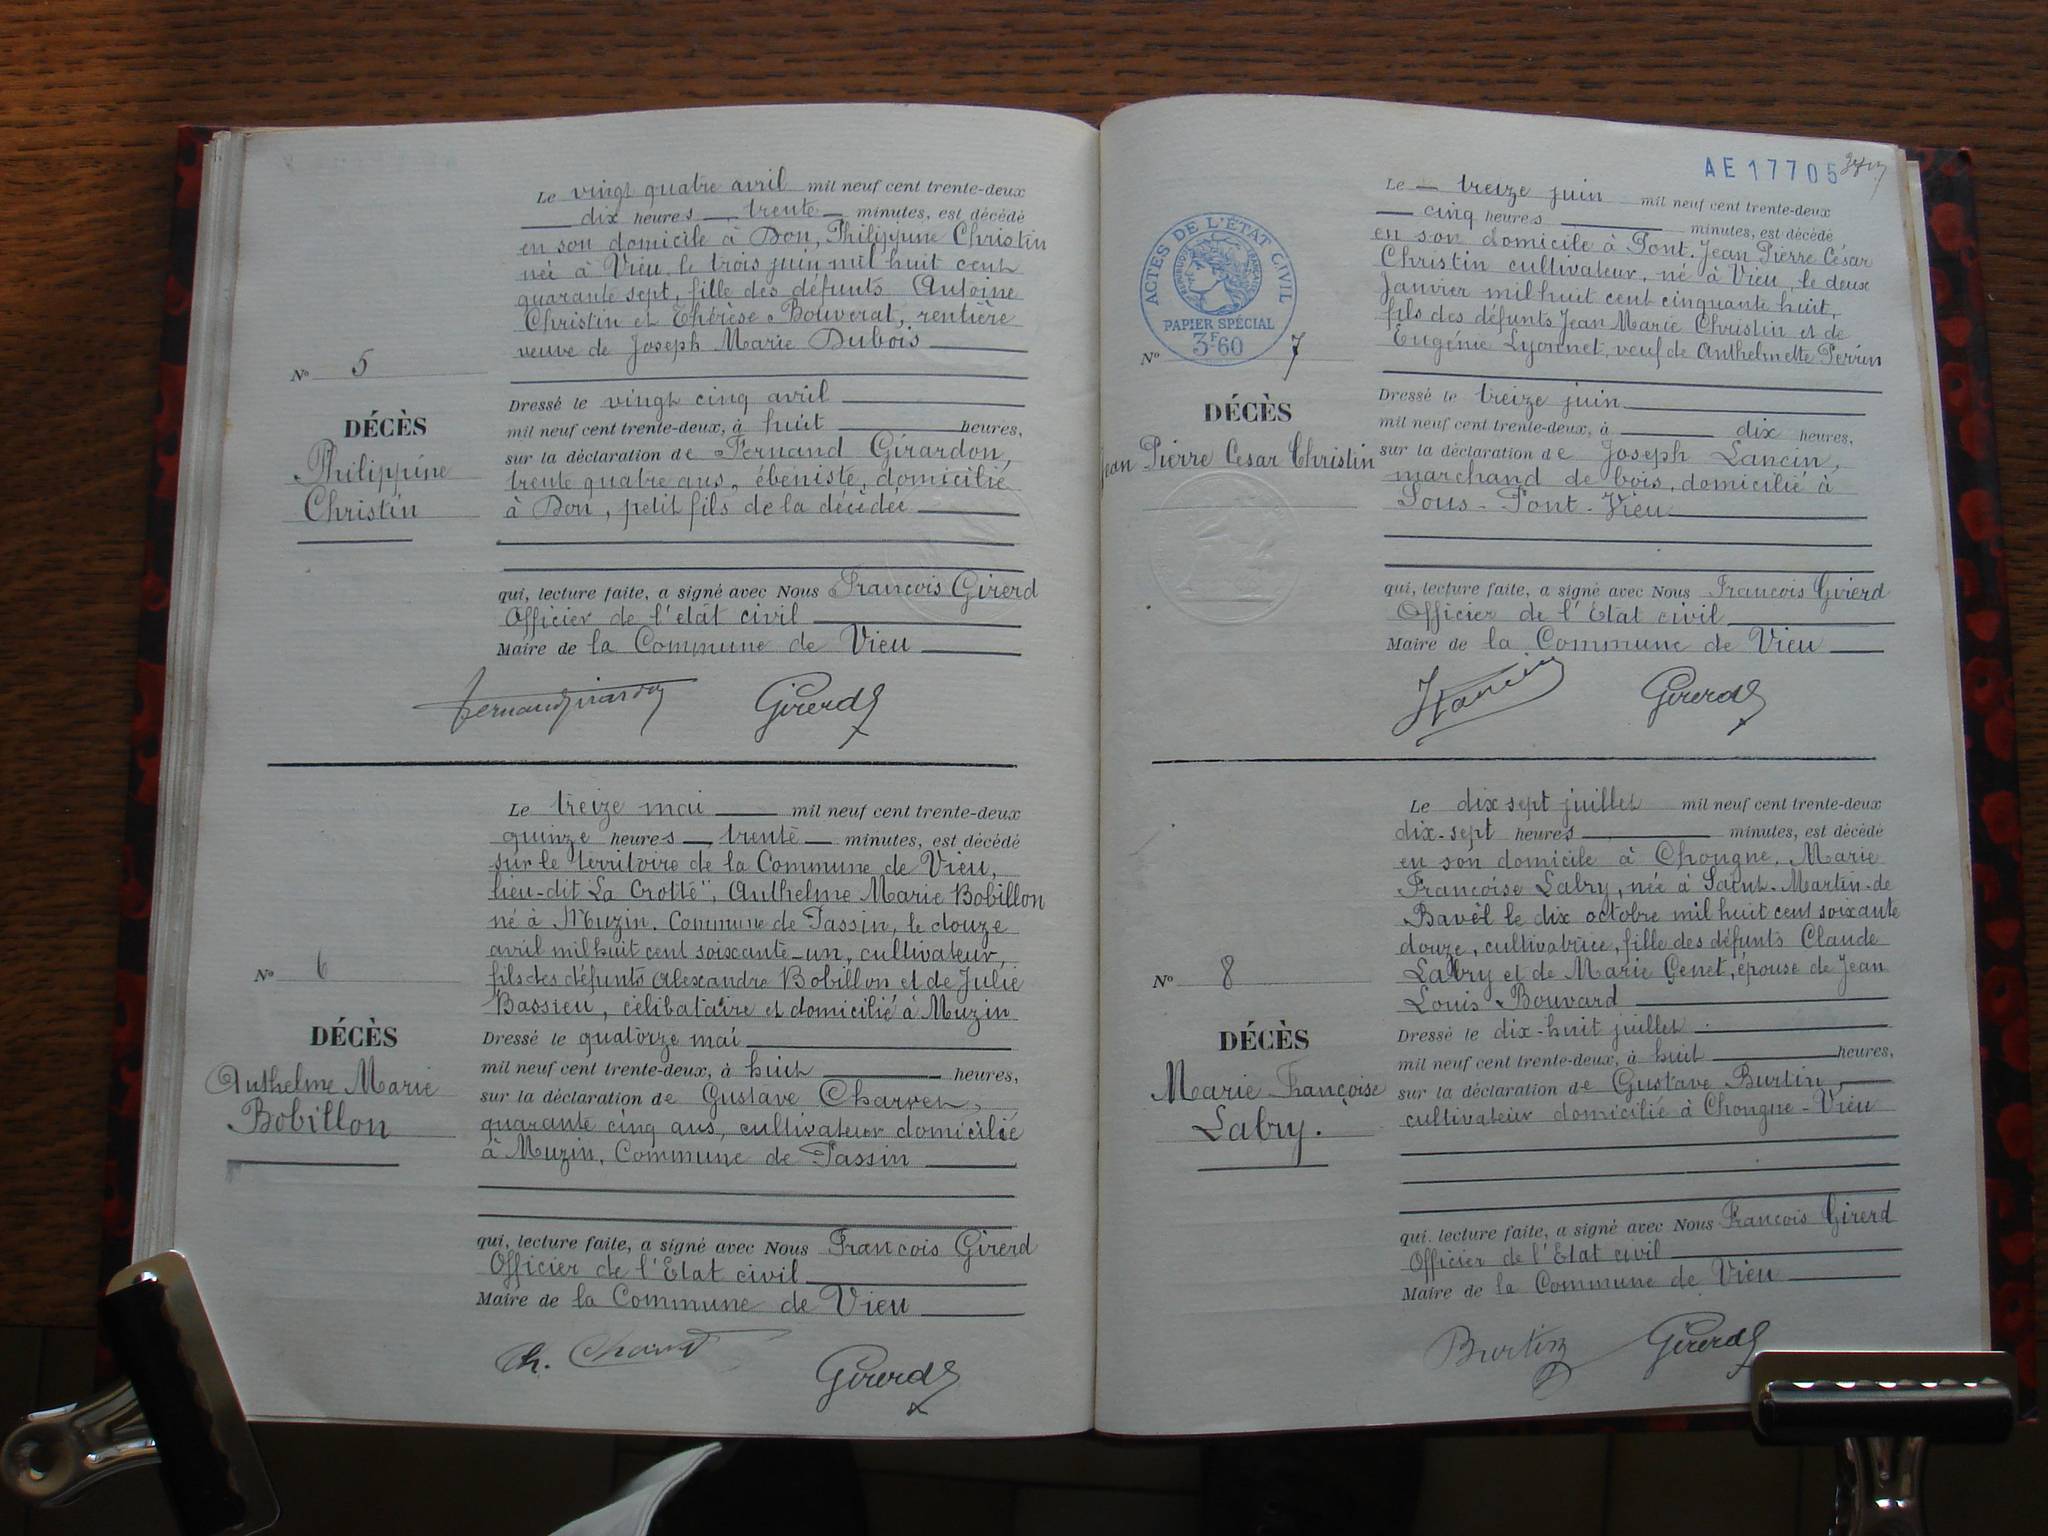 Le vingt quatre avril mil neuf cent trente-deux
dix heures, trente minutes, est décédé
en son domicile à Don, Philippine Christin
née à Vieu, le trois juin mil huit cent
quarante sept, fille des défunts Antoine
Christin et Thérèse Bouverat, rentière
veuve de Joseph Marie Dubois
N° 5
DÉCÈS
Philippine
Christin
Dressé le vingt cinq avril
mil neuf cent trente-deux, à huit heures,
sur la déclaration de Fernand Girardon,
trente quatre ans, ébéniste, domicilié
à Don, petit fils de la décédée
qui, lecture faite, a signé avec Nous François Girerd
Officier de l'état civil
Maire de la Commune de Vieu
Fernand Girardon Girerd
Le treize mai mil neuf cent trente-deux
quinze heures, trente minutes, est décédé
sur le territoire de la Commune de Vieu,
lieu-dit "La Crotte", Anthelme Marie Bobillon
né à Muzin, Commune de Passin, le douze
avril mil huit cent soixante-un, cultivateur,
fils des défunts Alexandre Bobillon et de Julie
Bassieu, célibataire et domicilié à Muzin
N° 6
DÉCÈS
Anthelme Marie
Bobillon
Dressé le quatorze mai
mil neuf cent trente-deux, à huit heures,
sur la déclaration de Gustave Charvet,
quarante cinq ans, cultivateur domicilié
à Muzin, Commune de Passin
qui, lecture faite, a signé avec Nous François Girerd
Officier de l'Etat civil
Maire de la Commune de Vieu
Ch. Charvet Girerd
AE 17705
ACTES DE L'ÉTAT CIVIL
RÉPUBLIQUE FRANÇAISE
PAPIER SPÉCIAL
3F60
Le treize juin mil neuf cent trente-deux
cinq heures minutes, est décédé
en son domicile à Pont, Jean Pierre César
Christin cultivateur, né à Vieu, le deux
Janvier mil huit cent cinquante huit,
fils des défunts Jean Marie Christin et de
Eugénie Lyonnet, veuf de Anthelmette Perrin
N° 7
DÉCÈS
Jean Pierre Cesar Christin
Dressé le treize juin
mil neuf cent trente-deux, à dix heures,
sur la déclaration de Joseph Lancin,
marchand de bois, domicilié à
Sous-Pont-Vieu
qui, lecture faite, a signé avec Nous François Girerd
Officier de l'Etat civil
Maire de la Commune de Vieu
JLancin Girerd
Le dix sept juillet mil neuf cent trente-deux
dix-sept heures minutes, est décédé
en son domicile à Chongne, Marie
Françoise Labry, née à Saint-Martin-de
Bavel le dix octobre mil huit cent soixante
douze, cultivatrice, fille des défunts Claude
Labry et de Marie Genet, épouse de Jean
Louis Bouvard
N° 8
DÉCÈS
Marie Françoise
Labry.
Dressé le dix-huit juillet
mil neuf cent trente-deux, à huit heures,
sur la déclaration de Gustave Burtin,
cultivateur domicilié à Chongne-Vieu
qui, lecture faite, a signé avec Nous François Girerd
Officier de l'Etat civil
Maire de la Commune de Vieu
Burtin Girerd